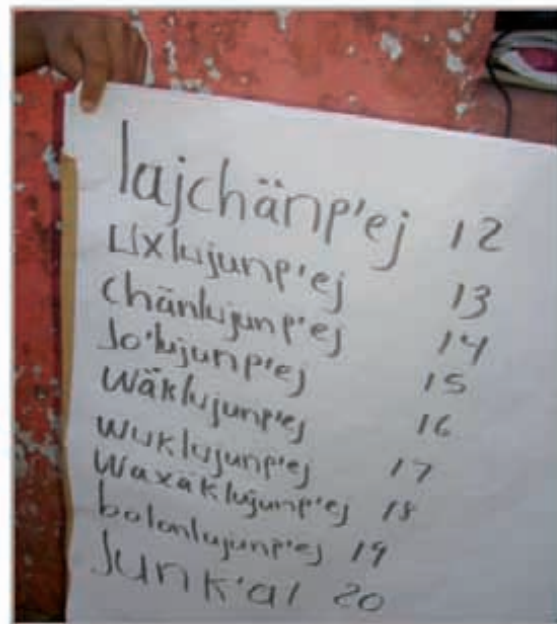 lajchänp'ej 12
Uxlujunp'ej 13
chänlujunp'ej 14
Jo'lujunp'ej 15
Wäklujunp'ej 16
wuklujunp'ej 17
Waxäklujunp'ej 18
bolonlujunp'ej 19
Junk'al 20